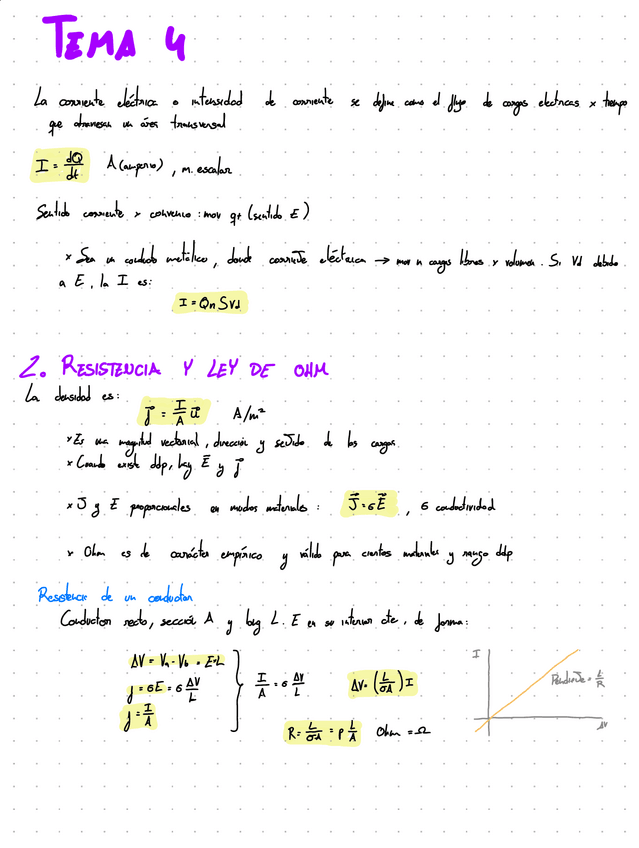 TEMA 4
La corriente eléctrica o intensidad de corriente se define como el flujo de cargas electricas x tiempo
que atraviesan un área transversal
I = dQ/dt A (amperio), m. escalar
Sentido corriente x convenio: mov q+ (sentido E)
* Sea un conducto metálico, donde corriente eléctrica → mov n cargas libres x volumen. Si Vd debido
a E, la I es:
I = Q n S Vd
2. RESISTENCIA Y LEY DE OHM
La densidad es:
J⃗ = I/A u⃗ A/m²
* Es una magnitud vectorial, dirección y sentido de las cargas
* Cuando existe ddp, hay E⃗ y J⃗
* J y E proporcionales en muchos materiales: J⃗ = σE⃗, σ conductividad
* Ohm es de carácter empírico y válido para ciertos materiales y rango ddp
Resistencia de un conductor
Conductor recto, sección A y long L. E en su interior cte, de forma:
ΔV = Va - Vb = E·L
j = σE = σ ΔV/L
j = I/A
I/A = σ ΔV/L
ΔV = (L/σA) I
R = L/σA = ρ L/A Ohm = Ω
I
Pendiente = 1/R
ΔV